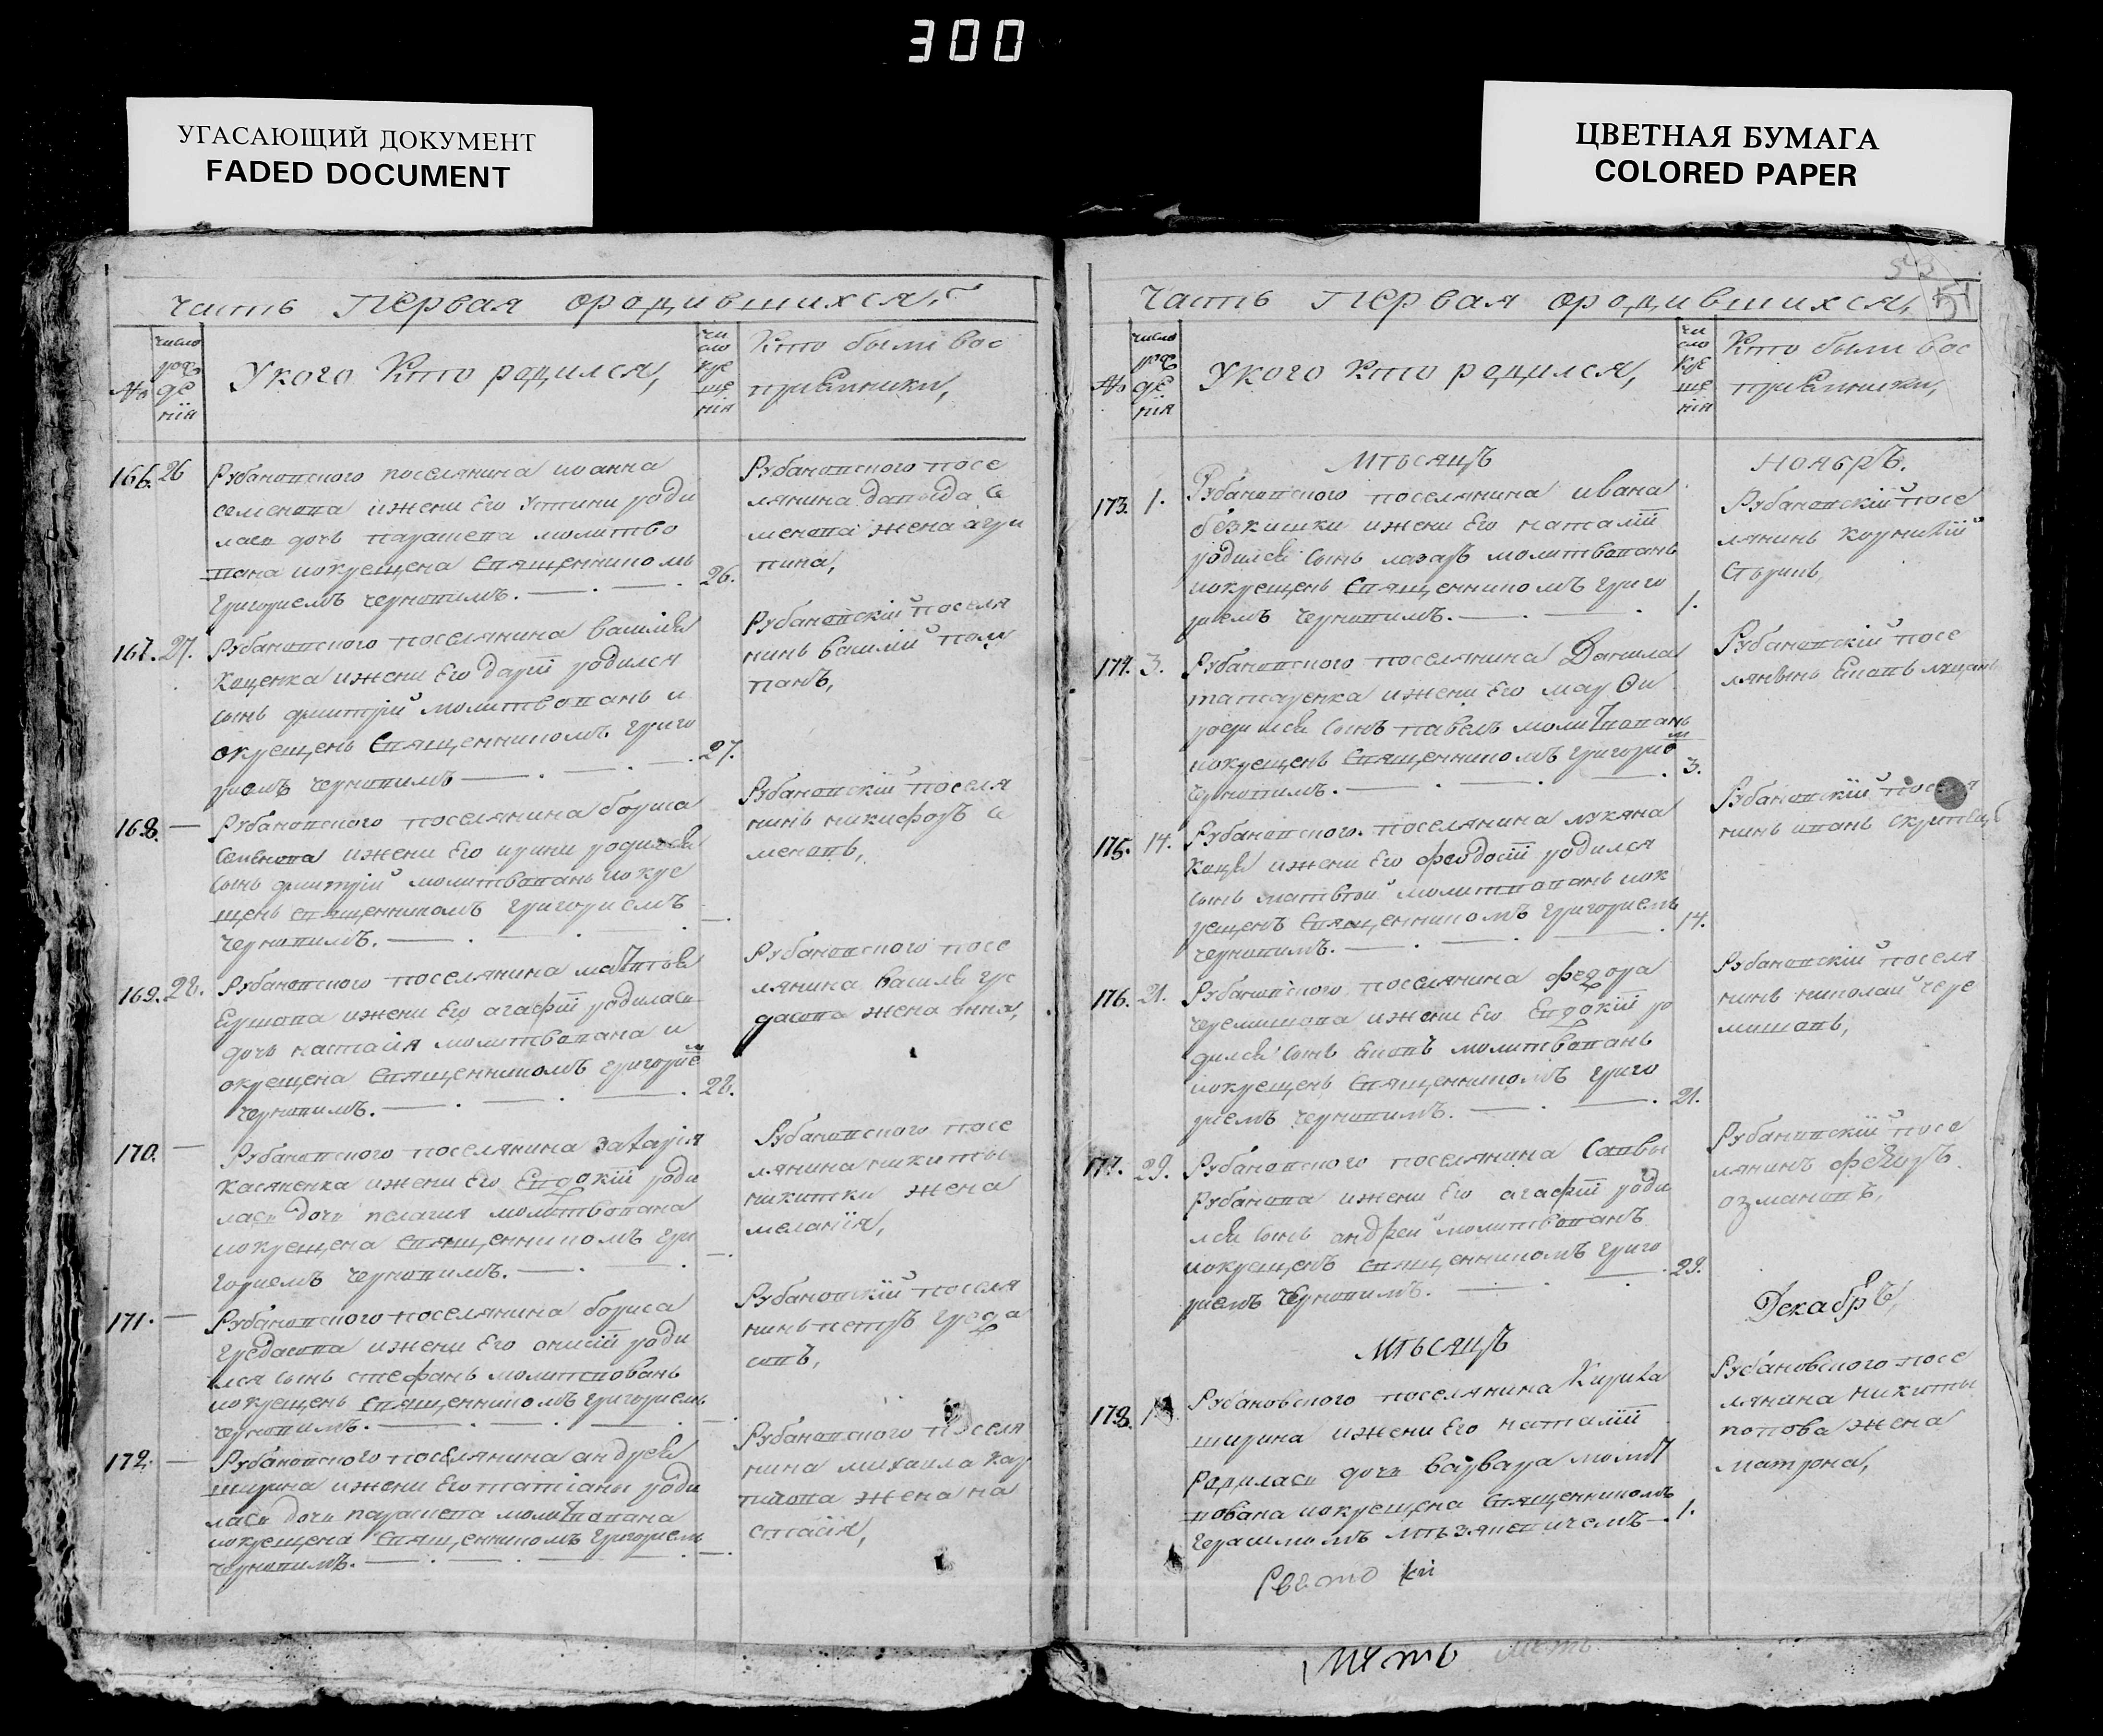 300
УГАСАЮЩИЙ ДОКУМЕНТ
FADED DOCUMENT
ЦВЕТНАЯ БУМАГА
COLORED PAPER
часть Первая ородившихся,
№
число рождения
Укого Кто родился,
число крещения
Кто были вос
приемники,
166. 26
Рубановского поселянина иоанна
семенова ижени Его Устини роди
лась дочь параскева молитво
вана иокрещена Священникомъ
Григориемъ черновимъ. 26.
Рубановского посе
лянина давыда Се
менова жена агри
пина,
167. 27.
Рубановского поселянина василия
Коценка ижени Его дарїи родился
сынь дмитрїй молитвовань и
окрещень Священникомъ григо
риемъ черновимъ 27.
Рубановскїй поселя
нинь василий
168. —
Рубановского поселянина бориса
Семенова ижени Его ирини родился
сынь дмитрїй молитвовань иокре
щень священникомъ григориемъ
черновимъ. —
Рубановскїй поселя
нинь никифоръ Се
меновь,
169. 28.
Рубановского поселянина матвея
Ершова ижени Его агафїи родилась
дочь настасїя молитвована и
окрещена Священникомъ григорие м
черновимъ. 28.
Рубановского посе
лянина василя гре
дасова жена анна,
170. —
Рубановского поселянина захарїя
Касяненка ижени Его Евдокїи роди
лась дочь пелагия молитвована
иокрещена священникомъ гри
гориемъ черновимъ. —
Рубановского посе
лянина никиты
никитски жена
меланїя,
171. —
Рубановского поселянина бориса
гредасова ижени Его онисїи роди
лся сынь стефань молитвовань
иокрещень священникомъ григориемь
черновимъ. —
Рубановскїй поселя
нинь петръ греда
совь,
172. —
Рубановского поселянина андрея
ширина ижени Его татїаны роди
лась дочь параскева молитвована
иокрещена Священникомъ Григориемь
черновимъ. —
Рубановского поселя
нина михаила кар
пова жена на
стасїя,
часть Первая ородившихся, 51
№
число рождения
Укого Кто родился,
число крещения
Кто были вос
приемники,
Мѣсяцъ
Ноябрь.
173. 1.
Рубановского поселянина ивана
безкишки ижени Его наталїи
родился сынь лазарь молитвовань
иокрещень Священникомъ григо
риемъ черновимъ. 1.
Рубановскїй посе
лянинь корнилїй
174. 3.
Рубановского поселянина Данила
татаренка ижени Его марѳи
родился сынъ павелъ молитвовань
иокрещень Священникомъ григорио м
черновимъ. 3.
Рубановскїй посе
175. 14.
Рубановского поселянина лукяна
Коця ижени Его феодосїи родился
сынь матвей молитвовань иок
рещенъ Священникомъ григориемь
черновимъ. 14.
Рубановскїй поселя
нинь ивань
176. 21.
Рубановского поселянина федора
черемишова ижени Его Евдокїи ро
дился сынь молитвовань
иокрещень Священникомъ григо
риемъ черновимъ. 21.
Рубановскїй поселя
нинь николай чере
мишовь,
177. 29.
Рубановского поселянина Саввы
Рубанова ижени Его агафїи роди
лся сынь андрей молитвованъ
иокрещенъ священникомъ григо
риемъ черновимъ. 29.
Рубановскїй посе
лянинъ федоръ
озмановъ,
Мѣсяцъ
Декабрь,
178. 1.
Рубановского поселянина Кирила
ширина ижени Его наталїи
Родилась дочь варвара молит
вована иокрещена Священникомъ
герасимомъ мѣзякевичемъ 1.
Рубановского посе
лянина никиты
попова жена
матрона,